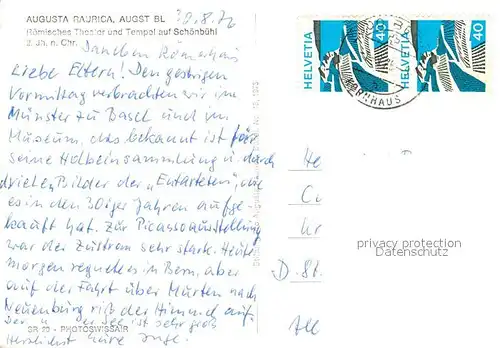 AUGUSTA RAURICA, AUGST BL
Römisches Theater und Tempel auf Schönbühl
2. Jh. n. Chr.
Daneben Römerhaus
Liebe Eltern! Den gestrigen
Vormittag verbrachten wir im
Münster zu Basel und im
Museum, das bekannt ist für
seine Holbeinsammlung u. durch
die vielen Bilder der „Entarteten", die
es in den 30iger Jahren aufge-
kauft hat. Zur Picassoausstellung
war der Zustrom sehr stark. Heute
morgen regnete es in Bern, aber
auf der Fahrt über Murten nach
Neuenburg riß der Himmel auf.
Der See ist sehr groß
Herzlichst Eure Inge.
SR 20 - PHOTOSWISSAIR
HELVETIA 40
HELVETIA 40
KORNHAUS
privacy protection
Datenschutz